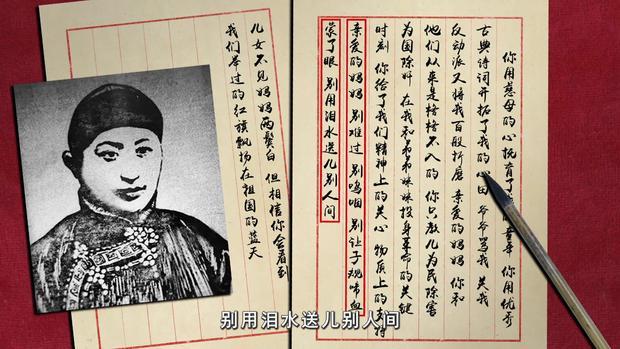 你用慈母的心抚育了 童年 你用优秀
古典诗词开拓了我的心田 爷爷骂我 关我
反动派又将我百般折磨 亲爱的妈妈 你和
他们从来是格格不入的 你只教儿为民除害
为国除奸 在我和弟弟妹妹投身革命的关键
时刻 你给了我们精神上的关心 物质上的支持
亲爱的妈妈 别难过 别呜咽 别让子规啼血
蒙了眼 别用泪水送儿别人间
儿女不见妈妈两鬓白 但相信你会看到
我们举过的红旗飘扬在祖国的蓝天
别用泪水送儿别人间